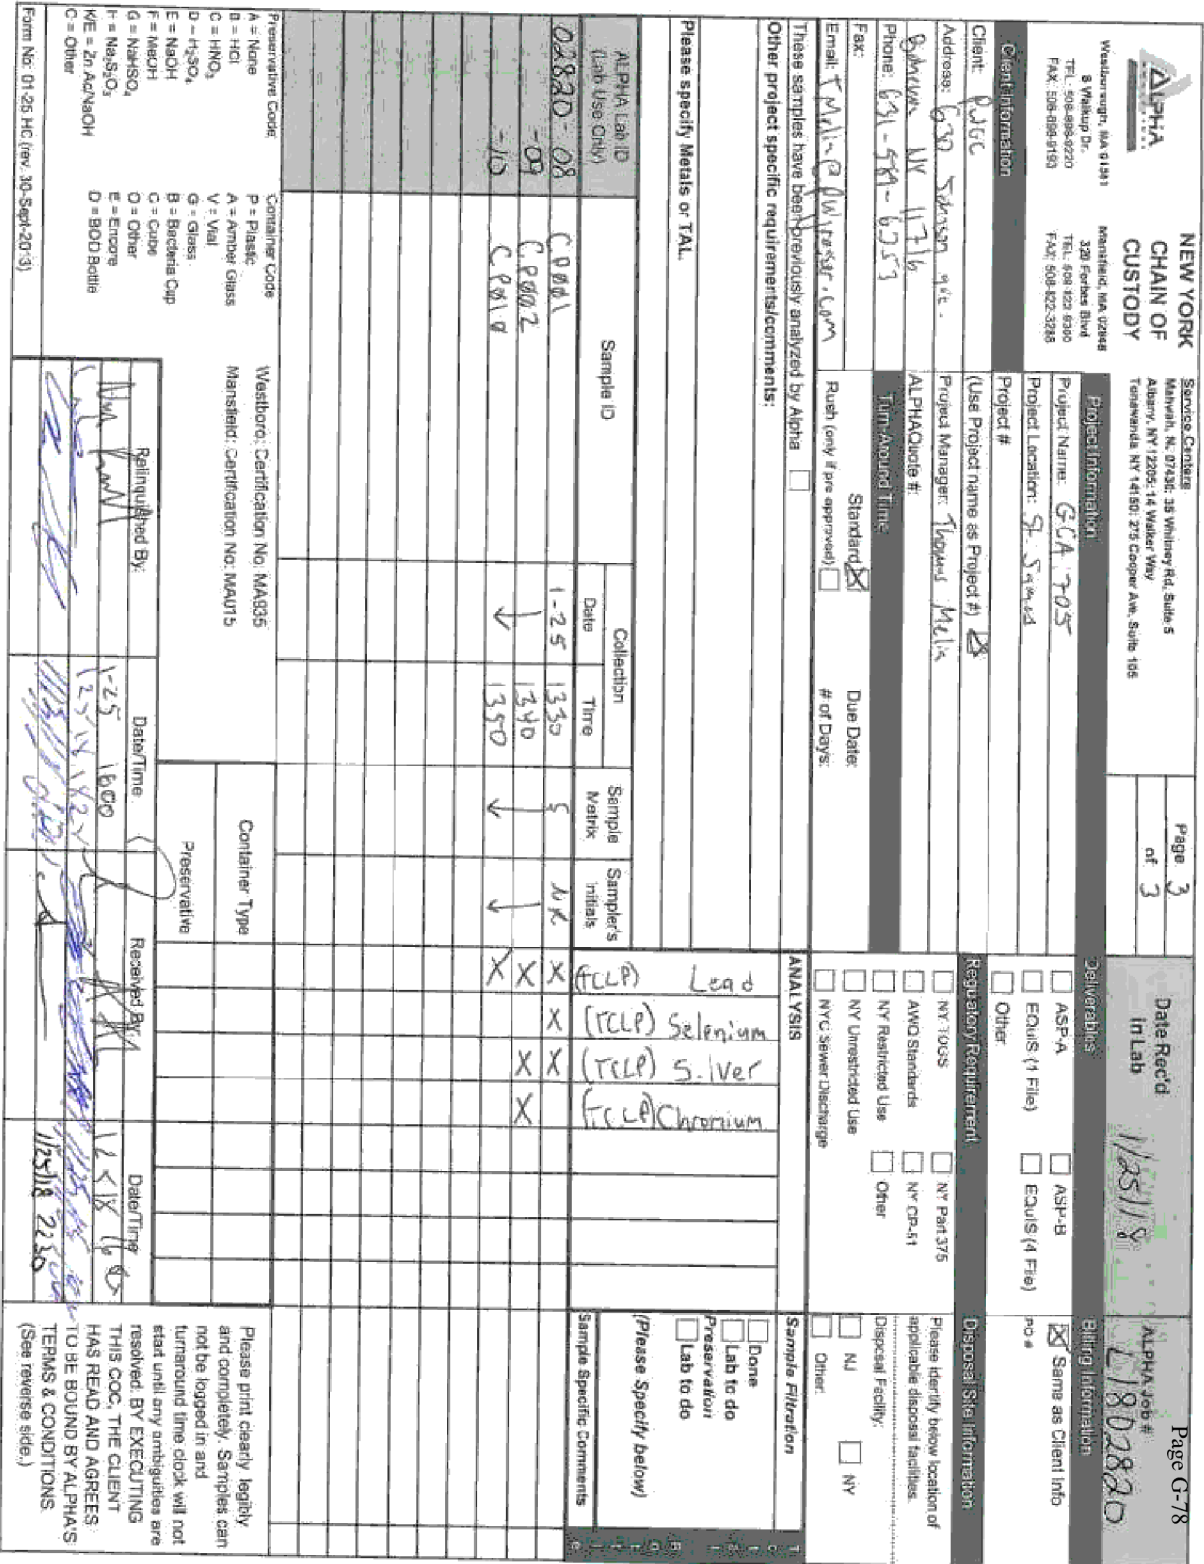 Page G-78
ALPHA
Westborough, MA 01581
8 Walkup Dr.
TEL: 508-898-9220
FAX: 508-898-9193
NEW YORK
CHAIN OF
CUSTODY
Mansfield, MA 02048
320 Forbes Blvd
TEL: 508-822-9300
FAX: 508-822-3288
Service Centers
Mahwah, NJ 07430: 35 Whitney Rd, Suite 5
Albany, NY 12205: 14 Walker Way
Tonawanda, NY 14150: 275 Cooper Ave, Suite 105
Page 3
of 3
Date Rec'd
in Lab
1/25/18
ALPHA Job #
L1802820
Client Information
Client: PWGC
Address: 630 Johnson Ave.
Bohemia NY 11716
Phone: 631-589-6353
Fax:
Email:
Project Information
Project Name: GCA 705
Project Location: St. James
Project #
(Use Project name as Project #) X
Project Manager: Thomas Melia
ALPHAQuote #:
Turn-Around Time
Standard X
Due Date:
Rush (only if pre approved)
# of Days:
Deliverables
ASP-A
ASP-B
EQuIS (1 File)
EQuIS (4 File)
Other
Billing Information
X Same as Client Info
PO #
Regulatory Requirement
NY TOGS
NY Part 375
AWQ Standards
NY CP-51
NY Restricted Use
Other
NY Unrestricted Use
NYC Sewer Discharge
Disposal Site Information
Please identify below location of
applicable disposal facilities.
Disposal Facility:
NJ
NY
Other:
These samples have been previously analyzed by Alpha
Other project specific requirements/comments:
Please specify Metals or TAL.
ANALYSIS
(TCLP) Lead
(TCLP) Selenium
(TCLP) Silver
(TCLP) Chromium
Sample Filtration
Done
Lab to do
Preservation
Lab to do
(Please Specify below)
Total Bottle
ALPHA Lab ID
(Lab Use Only)
Sample ID
Collection
Date
Time
Sample
Matrix
Sampler's
Initials
Sample Specific Comments
02820-08 CP001 1-25 1330 S NR X X X
-09 CP002 ↓ 1340 ↓ ↓ X X X
-10 CP010 ↓ 1350 ↓ ↓ X
Preservative Code:
A = None
B = HCl
C = HNO3
D = H2SO4
E = NaOH
F = MeOH
G = NaHSO4
H = Na2S2O3
K/E = Zn Ac/NaOH
O = Other
Container Code
P = Plastic
A = Amber Glass
V = Vial
G = Glass
B = Bacteria Cup
C = Cube
O = Other
E = Encore
D = BOD Bottle
Westboro: Certification No: MA935
Mansfield: Certification No: MA015
Container Type
Preservative
Relinquished By:
Date/Time
Received By:
Date/Time
1-25 1600
1/25/18 2230
Please print clearly, legibly
and completely. Samples can
not be logged in and
turnaround time clock will not
start until any ambiguities are
resolved. BY EXECUTING
THIS COC, THE CLIENT
HAS READ AND AGREES
TO BE BOUND BY ALPHA'S
TERMS & CONDITIONS.
(See reverse side.)
Form No: 01-25 HC (rev. 30-Sept-2013)